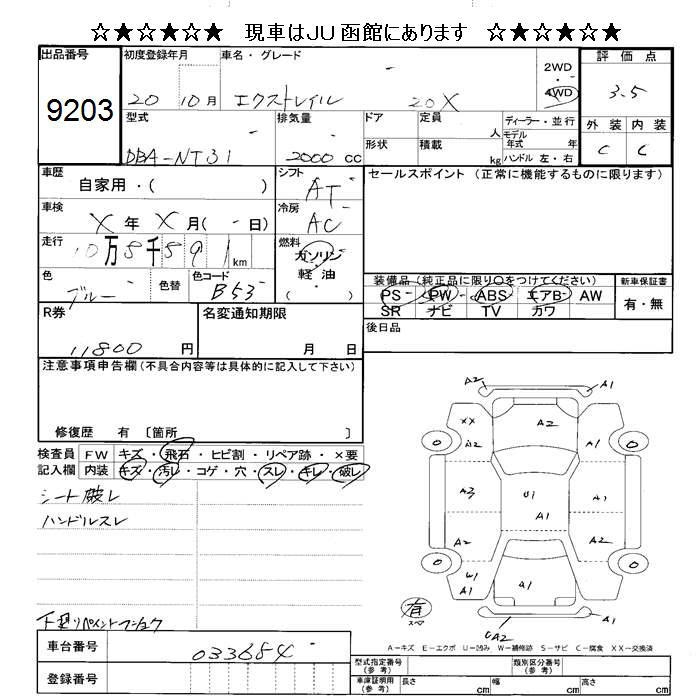 ☆★☆★☆★ 現車はJU函館にあります ★☆★☆★☆
出品番号
9203
初度登録年月
20 10月
車名・グレード
エクストレイル 20X
2WD
・
4WD
評価点
3.5
外装 内装
C C
型式
DBA-NT31
排気量
2000 cc
ドア
定員
人
形状
積載
kg
ディーラー・並行
モデル
年式 年
ハンドル 左・右
車歴
自家用・( )
シフト
AT
セールスポイント (正常に機能するものに限ります)
車検
X 年 X 月(- 日)
冷房
AC
走行
10万8千591 km
燃料
ガソリン
・
軽油
( )
色
ブルー
色替
色コード
B53
装備品(純正品に限り○をつけてください)
新車保証書
PS PW ABS エアB AW
SR ナビ TV カワ
有・無
R券
11800 円
名変通知期限
月 日
後日品
注意事項申告欄(不具合内容等は具体的に記入して下さい)
修復歴 有 〔箇所 〕
検査員
記入欄
FW キズ・飛石・ヒビ割・リペア跡・×要
内装 キズ・汚レ・コゲ・穴・スレ・キレ・破レ
シート破レ
ハンドルスレ
下廻りペイント
車台番号
033684
登録番号
A2 A1
XX A2 A2 A1
A3 U1 A1 A1
A2 A2
U1 A1 A1 A1
A2
有
A-キズ E-エクボ U-凹み W-補修跡 S-サビ C-腐食 XX-交換済
型式指定番号
(参考)
類別区分番号
(参考)
車庫証明用
(参考)
長さ cm 幅 cm 高さ cm